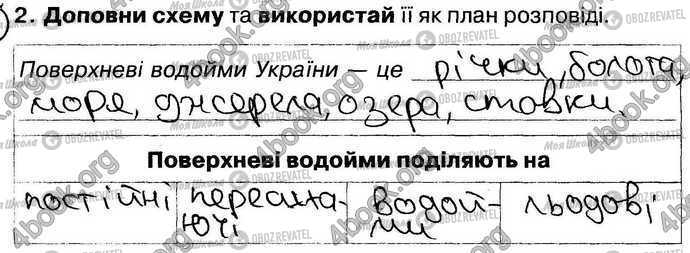 2. Доповни схему та використай її як план розповіді.
Поверхневі водойми України – це річки, болота,
моря, джерела, озера, ставки.
Поверхневі водойми поділяють на
постійні пересиха- водой- льодові
ючі ми